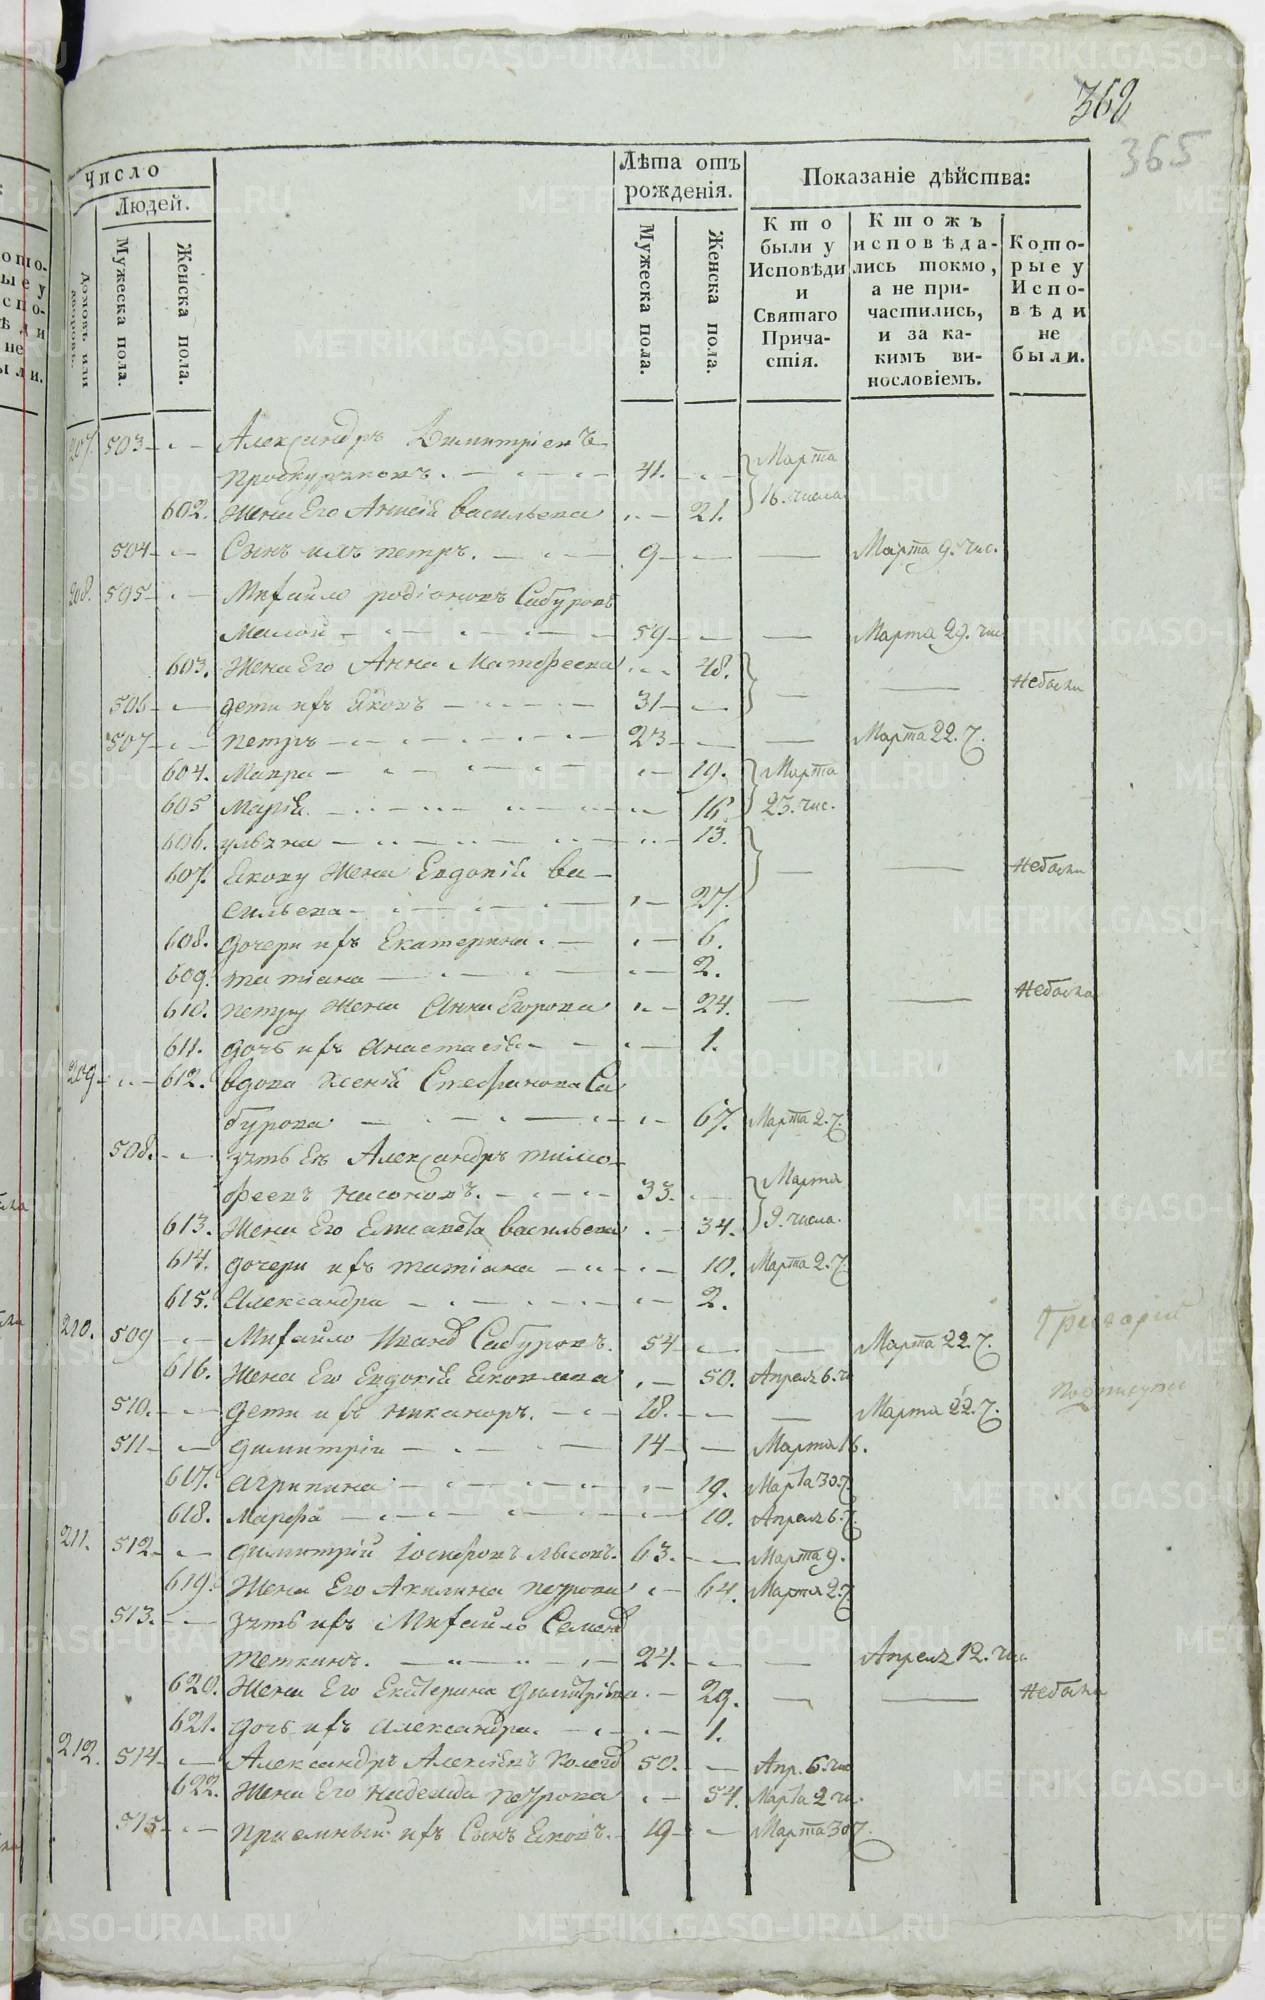 362
365
Число
Людей.
Домовъ или дворовъ.
Мужеска пола.
Женска пола.
Лѣта отъ рожденія.
Мужеска пола.
Женска пола.
Показаніе дѣйства:
Кто были у Исповѣди и Святаго Причастія.
Ктожъ исповѣдались токмо, а не причастились, и за какимъ винословіемъ.
Которые у Исповѣди не были.
207. 503 Александръ Димитріевъ
Проскуряковъ. 41. Марта
602. Жена Его Анисія Васильева 21. 16. числа
504 Сынъ ихъ петръ. 9 Марта 9. чис.
208. 505 Михайло родіоновъ Сабуровъ
Малой 59 Марта 29. чис
603. Жена Его Анна Матфеева 48. Небыли
506 дети ихъ Яковъ 31
507 петръ 23 Марта 22. ч.
604. Мавра 19. Марта
605 Марія. 16. 23. чис.
606. ульяна 13.
607. Якову Жена Евдокія Ва- Небыли
сильева 27.
608. дочери ихъ Екатерина. 6.
609. татіана 2.
610. петру Жена Анна Егорова 24. Небыла
611. дочь ихъ Анастасія 1.
209 612. вдова Ксенія Стефанова Са
бурова 67. Марта 2. ч.
508. зять Ея Александръ тимо-
феевъ Насоновъ. 33. Марта
613. Жена Его Елисавета васильева 34. 9. числа.
614. дочери ихъ татіана 10. Марта 2. ч.
615. Александра 2.
210. 509 Михайло Иванов Сабуровъ. 54 Марта 22. ч.
Григорій
616. Жена Его Евдокія Яковлева 50. Апреля 6. ч
510. дети ихъ никаноръ. 18. Марта 22. ч.
511 димитріи 14 Марта 16.
617. агрипина 19. Марта 30. ч
618. Марфа 10. Апреля 6. ч.
211. 512 димитрій Іосифовъ лысовъ. 63. Марта 9.
619. Жена Его Акилина петрова 64. Марта 2 ч
513. зять ихъ Михайло Семенов
теткинъ. 24. Апреля 12. чи
620. Жена Его Екатерина димитріева. 29. Небыла
621. дочь ихъ Александра. 1.
212. 514 Александръ Алексѣевъ 50. Апр. 6. чис
622. Жена Его надежда петрова 54. Марта 2 чи.
515 приемный ихъ Сынъ Яковъ. 19 Марта 30 ч.
METRIKI.GASO-URAL.RU